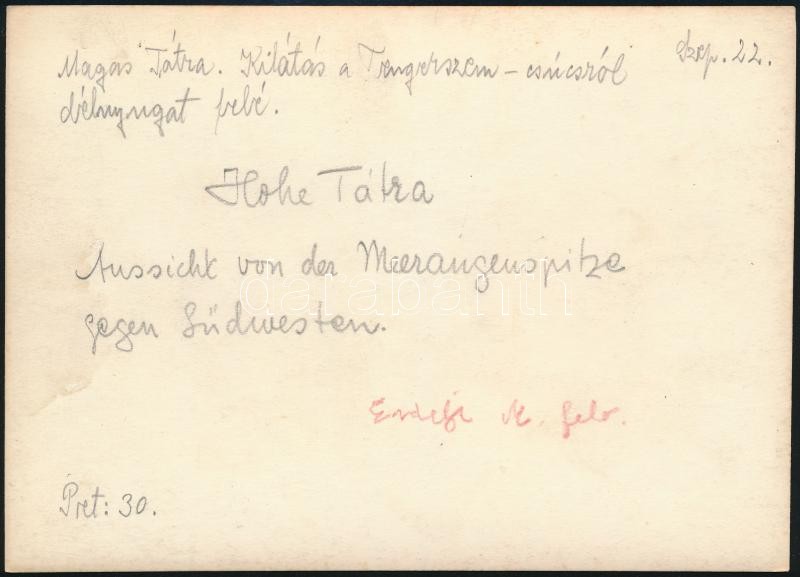 Szep. 22.
Magas Tátra. Kilátás a Tengerszem-csúcsról
délnyugat felé.
Hohe Tátra
Aussicht von der Meeraugenspitze
gegen Südwesten.
darabanth
M. felv.
Pret: 30.